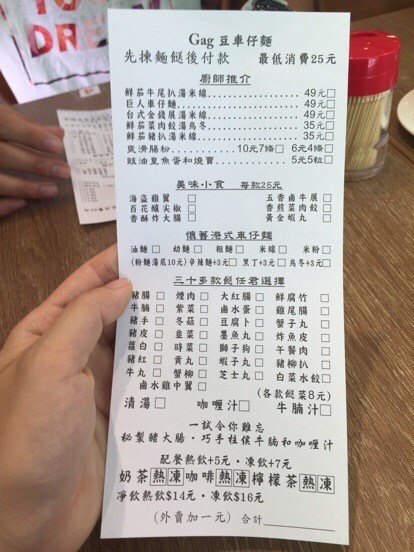 Gag 豆車仔麵
先揀麵餸後付款 最低消費25元
廚師推介
鮮茄牛尾扒湯米線 49元□
巨人車仔麵 49元□
台式金錢展湯米線 49元□
鮮茄菜肉餃湯烏冬 35元□
鮮茄豬扒湯米線 35元□
炭燒腸粉 10元7條□ 6元4條□
豉油皇魚蛋和燒賣 5元5粒□
美味小食 每款25元
海盜雞翼 □ 五香滷牛展 □
百花釀尖椒 □ 香煎菜肉餃 □
香酥炸大腸 □ 黃金蝦丸 □
懷舊港式車仔麵
油麵 □ 幼麵 □ 粗麵 □ 米線 □ 米粉 □
(粉麵湯底10元) 辛辣麵+3元□ 黑丁+3元□ 烏冬+3元□
三十多款餸任君選擇
豬腸 □ 煙肉 □ 大紅腸 □ 鮮腐竹 □
牛腩 □ 紫菜 □ 鹵水蛋 □ 雞尾腸 □
豬手 □ 冬菇 □ 豆腐卜 □ 蟹子丸 □
豬皮 □ 韭菜 □ 墨魚丸 □ 炸魚皮 □
蘿白 □ 時菜 □ 獅子狗 □ 午餐肉 □
豬紅 □ 貢丸 □ 蝦子丸 □ 豬柳扒 □
牛丸 □ 蟹柳 □ 芝士丸 □ 白菜水餃 □
鹵水雞中翼 □ (各款餸菜8元)
清湯 □ 咖喱汁 □ 牛腩汁 □
一試令你難忘
秘製豬大腸・巧手柱侯牛腩和咖喱汁
配餐熱飲+5元・凍飲+7元
奶茶熱凍咖啡熱凍檸檬茶熱凍
淨飲熱飲$14元・凍飲$16元
(外賣加一元) 合計